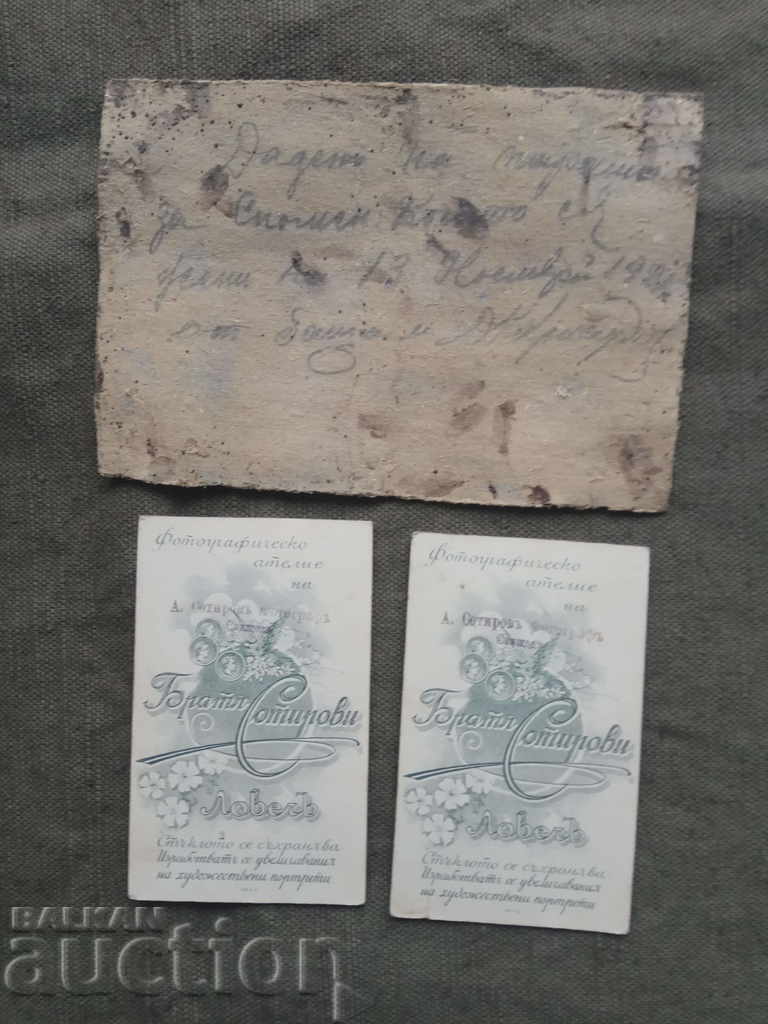 Дадет на
за Спомен Който се
на 13 Ноемврий 19
от баща и
Фотографическо
ателие
на
А. Сотировъ фотографъ
Братя Сотирови
Ловечъ
Стъклото се съхранява
Изработватъ се увеличавания
на художествени портрети
Фотографическо
ателие
на
А. Сотировъ фотографъ
Братя Сотирови
Ловечъ
Стъклото се съхранява
Изработватъ се увеличавания
на художествени портрети
BALKAN
auction